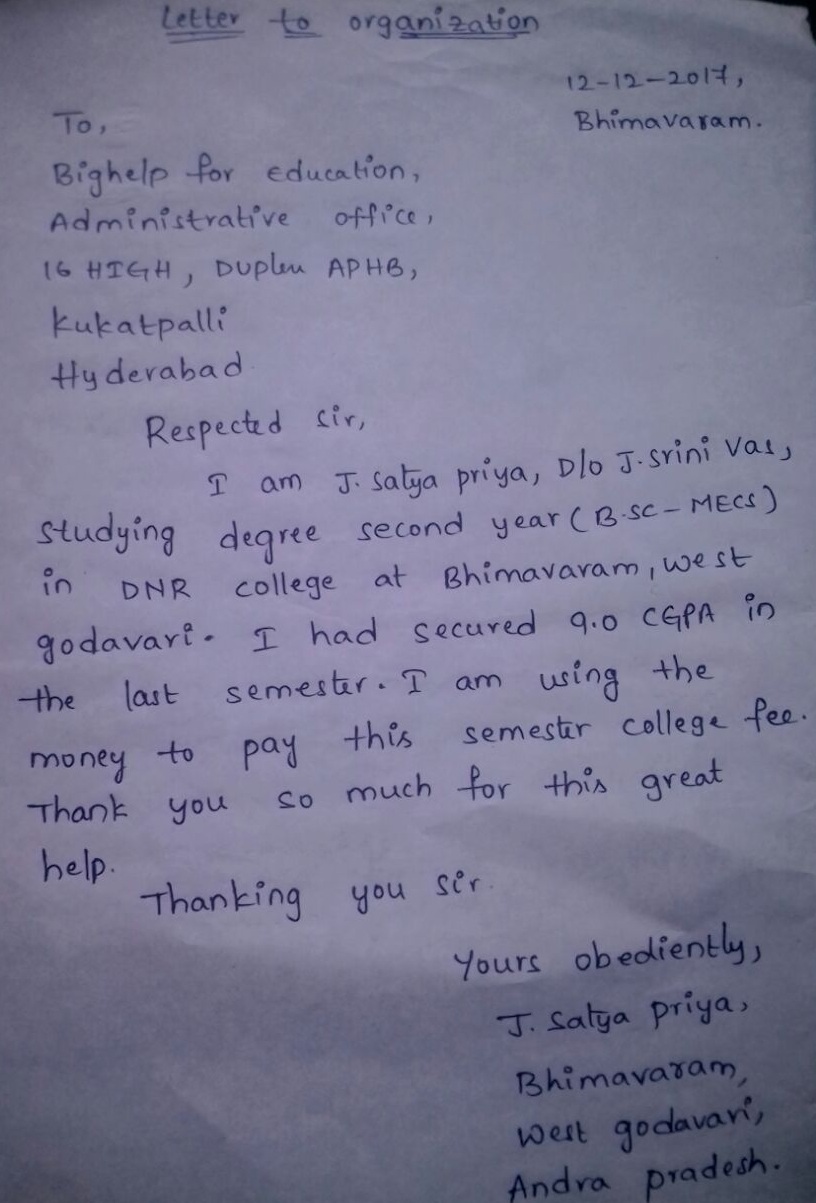 Letter to organization
12-12-2017,
Bhimavaram.
To,
Bighelp for education,
Administrative office,
16 HIGH, Duplex APHB,
Kukatpalli
Hyderabad
Respected sir,
I am J. Satya priya, D/o J. Srini vas,
studying degree second year (B.SC - MECS)
in DNR college at Bhimavaram, west
godavari. I had secured 9.0 CGPA in
the last semester. I am using the
money to pay this semester college fee.
Thank you so much for this great
help.
Thanking you sir.
Yours obediently,
J. Satya priya,
Bhimavaram,
West godavari,
Andra pradesh.